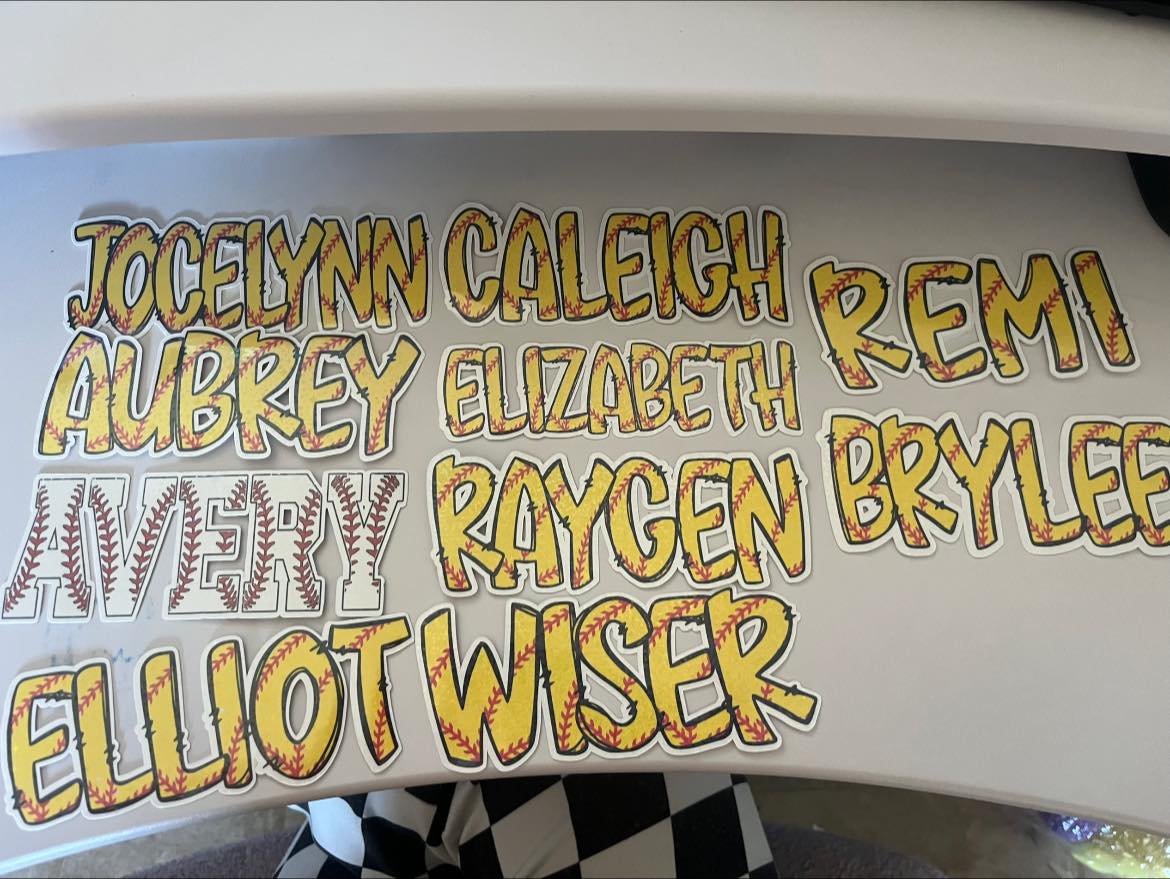 JOCELYNN
CALEIGH
REMI
AUBREY
ELIZABETH
BRYLEE
AVERY
RAYGEN
ELLIOT
WISER